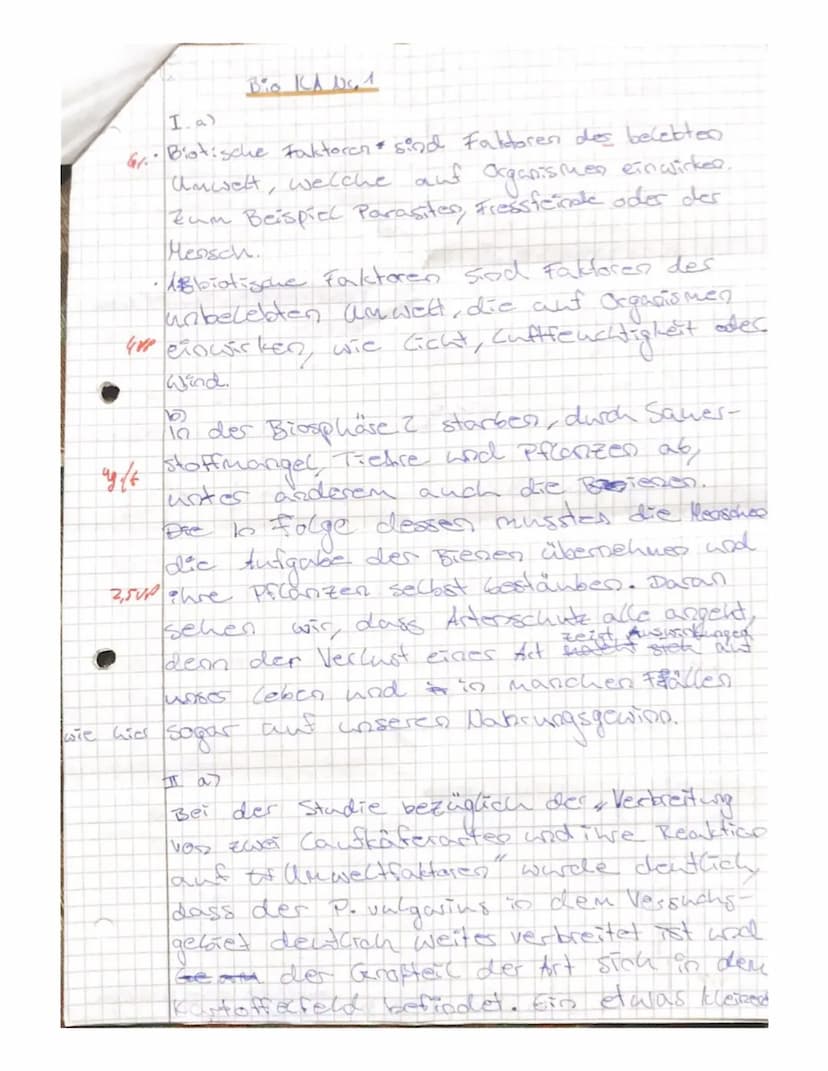 Bio KA Nr. 1
I. a)
Gr. · Biotische Faktoren sind Faktoren der belebten
Umwelt, welche auf Organismen einwirken.
Zum Beispiel Parasiten, Fressfeinde oder der
Mensch.
· Abiotische Faktoren sind Faktoren der
unbelebten Umwelt, die auf Organismen
einwirken, wie Licht, Luftfeuchtigkeit oder
Wind.
b)
In der Biosphäre 2 starben, durch Sauer-
stoffmangel, Tiehre und Pflanzen ab,
unter anderem auch die Bienen.
Die In Folge dessen mussten die Menschen
die Aufgabe der Bienen übernehmen und
2,5VP ihre Pflanzen selbst bestäuben. Daran
sehen wir, dass Artenschutz alle angeht,
zeigt Auswirkungen
denn der Verlust einer Art macht sich auf
unser Leben und in manchen Fällen
wie hier sogar auf unseren Nahrungsgewinn.
II a)
Bei der Studie bezüglich der „Verbreitung
von zwei Laufkäferarten und ihre Reaktion
auf Umweltfaktoren" wurde deutlich,
dass der P. vulgarius in dem Versuchs-
gebiet deutlich weiter verbreitet ist und
der Großteil der Art sich in dem
Kartoffelfeld befindet. Ein etwas kleinerer